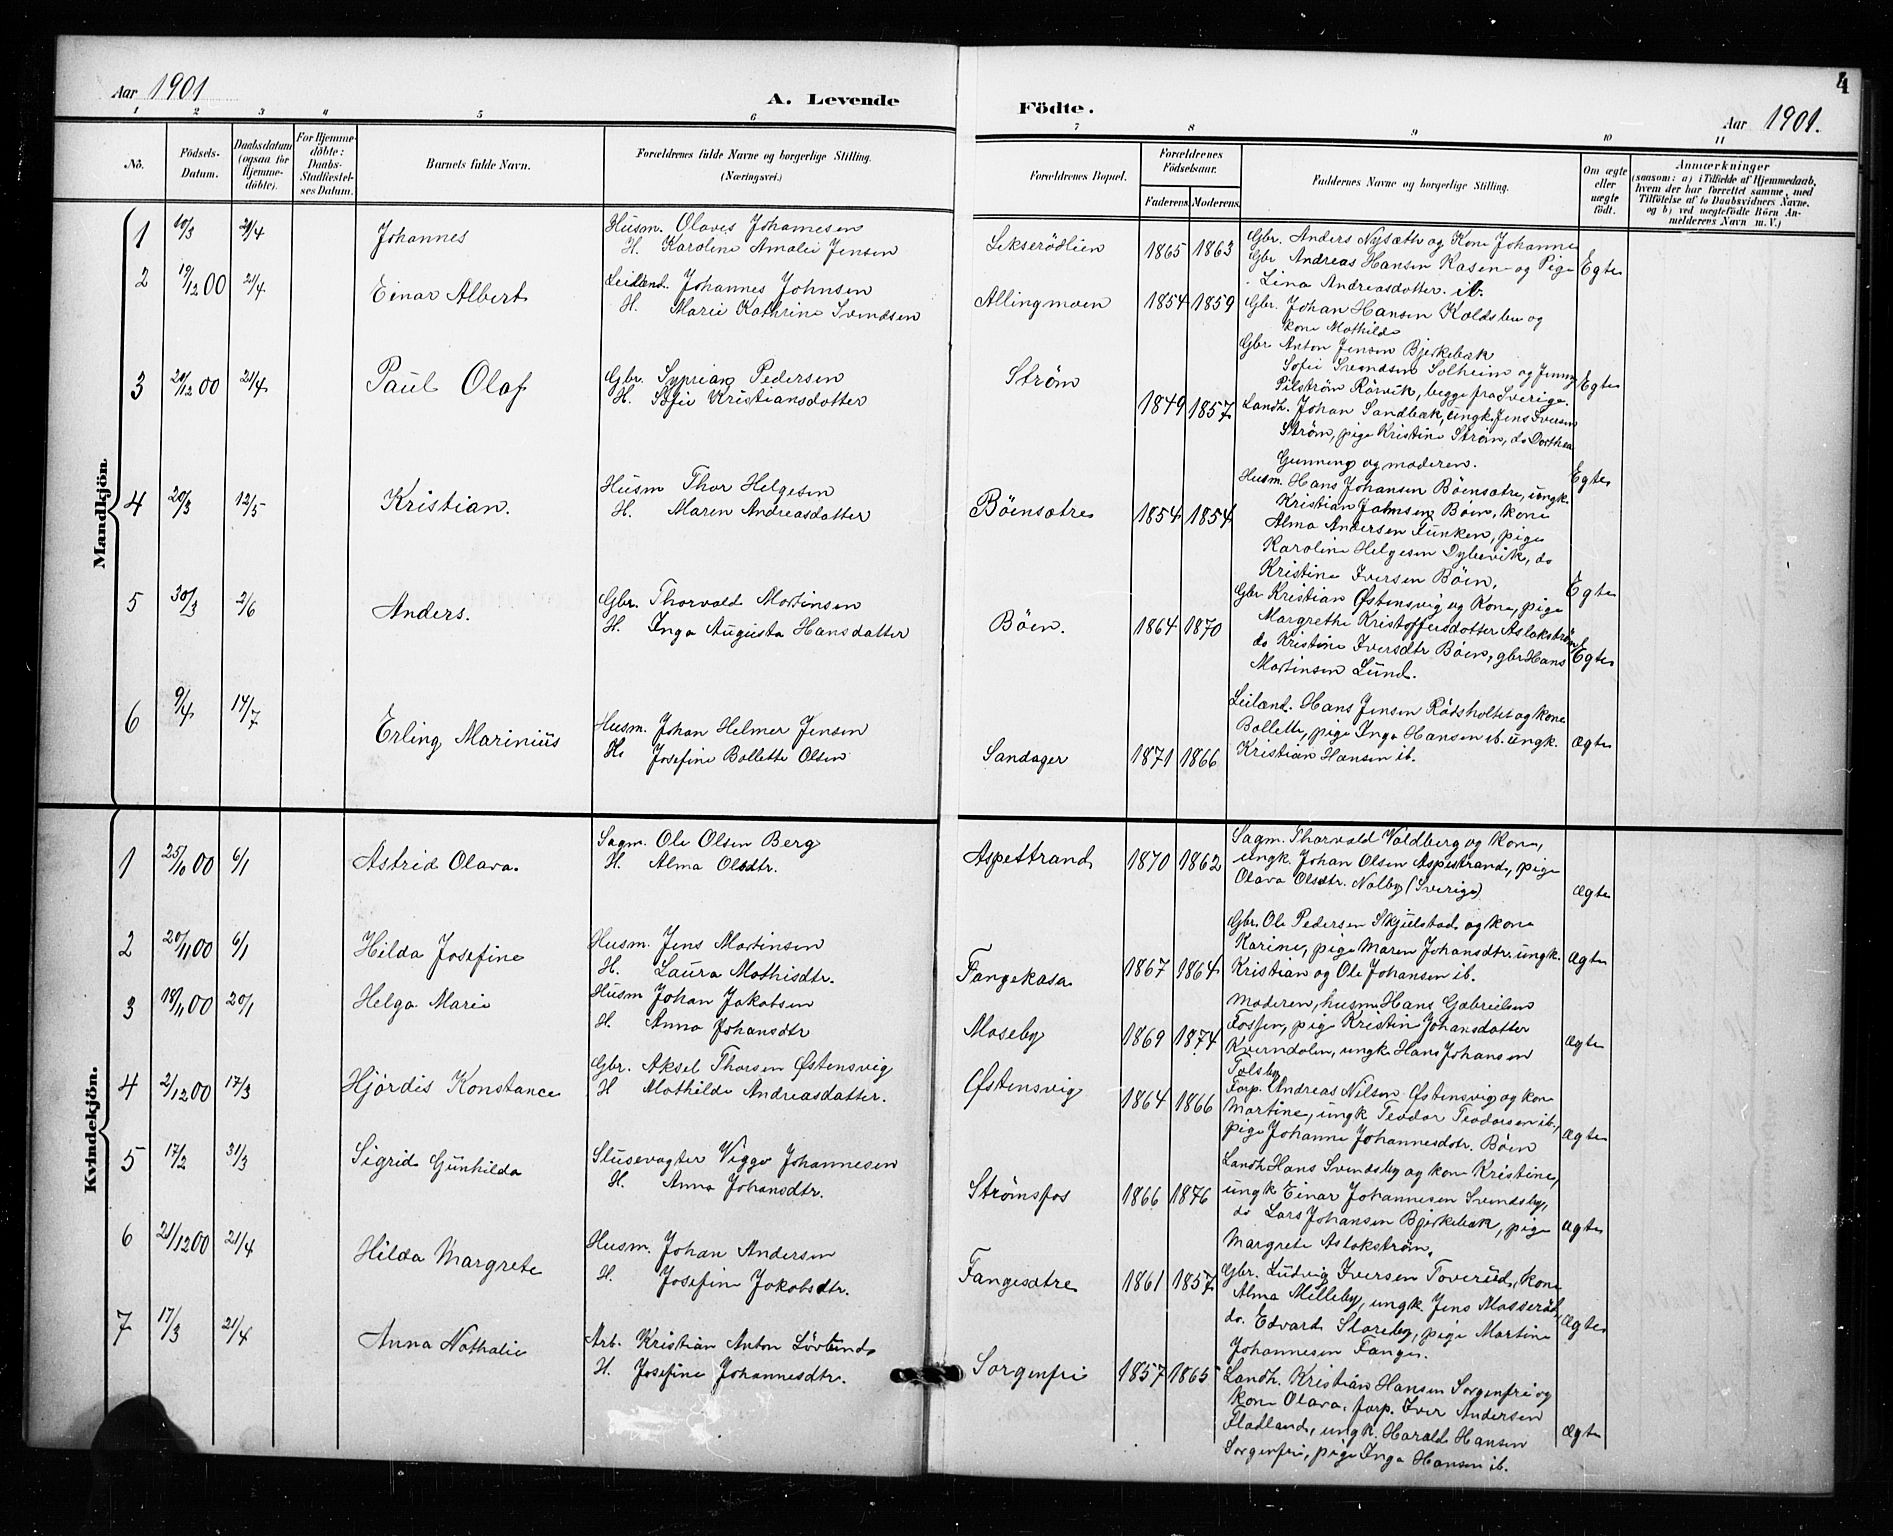 Aar 1901
A. Levende
Födte.
Aar 1901.
4
1 2 3 4 5 6 7 8 9 10 11
No.
Födsels-
Datum.
Daabsdatum
(ogsaa for
Hjemme-
döbte).
For Hjemme-
döbte:
Daabs-
Stadfæstel-
ses Datum.
Barnets fulde Navn.
Forældrenes fulde Navne og borgerlige Stilling.
(Næringsvei.)
Forældrenes Bopæl.
Forældrenes
Födselsaar.
Faderens. Moderens.
Faddernes Navne og borgerlige Stilling.
Om ægte
eller
uægte
födt.
Anmærkninger
(saasom: a) i Tilfælde af Hjemmedaab,
hvem der har forrettet samme, med
Tilföielse af to Daabsvidners Navne,
og b) ved uægtefödte Börn An-
melderens Navn m. V.)
Mandkjön.
1 10/3 21/4 Johannes
Husm. Olaves Johannesen
H. Karoline Amalie Jensen
Lekserödlien 1865 1863
Gbr. Anders Nysæth og Kone Johanne
Gbr Andreas Hansen Kasen og Pige
Lina Andreasdotter ib.
Egte
2 19/12 00 21/4 Einar Albert
Leilænd. Johannes Johnsen
H. Marie Kathrine Svendsen
Allingmoen 1854 1859
Gbr. Johan Hansen Koldsbu og
kone Mathilde
Gbr Anton Jensen Bjerkebæk
Sofie Svendsen Solheim og Jenny
Pilström Rörvik, begge fra Sverige.
Egte
3 21/12 00 21/4 Paul Olaf
Gbr. Syprian Pedersen
H. Sofie Kristiansdatter
Ström 1849 1857
Landh. Johan Sandbæk, ungk. Jens Iversen
Ström, pige Kristine Ström, do Dorthea
Gunneng og moderen.
Egte
4 20/3 12/5 Kristian.
Husm Thor Helgesen
H. Maren Andreasdatter
Böensætre 1854 1854
Husm. Hans Johansen Böensætre, ungk.
Kristian Johnsen Böen, kone
Alma Andersen Funken, pige
Karoline Helgesen Dybevik, do
Kristine Iversen Böen.
Egte
5 30/3 2/6 Anders.
Gbr. Thorvald Martinsen
H. Inga Augusta Hansdatter
Böen. 1864 1870
Gbr Kristian Østensvig og Kone, pige
Margrethe Kristoffersdotter Aslakström
do Kristine Iversdtr Böen, gbr Hans
Martinsen Lund.
Egte
6 9/4 14/7 Erling Marinius
Husm. Johan Helmer Jensen
H. Josefine Bollette Olsen
Sandager 1871 1866
Leilænd. Hans Jensen Rödsholtet og kone
Bollette, pige Inga Hansen ib. ungk.
Kristian Hansen ib.
ægte
Kvindekjön.
1 25/10 00 6/1 Astrid Olava.
Sagm. Ole Olsen Berg
H. Alma Olsdtr.
Aspestrand 1870 1862
Sagm. Thorvald Valdberg og Kone,
ungk. Johan Olsen Aspestrand, pige
Olava Olsdtr. Nolby (Sverige)
ægte
2 20/11 00 6/1 Hilda Josefine
Husm. Jens Martinsen
H. Laura Mathisdtr.
Fangekasa 1867 1864
Gbr. Ole Pedersen Skjulstad og kone
Karine, pige Maren Johansdtr, ungk.
Kristian og Ole Johansen ib.
ægte
3 18/11 00 20/1 Helga Marie
Husm Johan Jakobsen
H. Anna Johansdtr
Moseby 1869 1874
Moderen, husm. Hans Gabrielsen
Fossen, pige Kristin Johansdatter
Kverndalen, ungk. Hans Johansen
Tolsby
ægte
4 2/12 00 17/3 Hjördis Konstance
Gbr. Aksel Thorsen Østensvig
H Mathilde Andreasdatter.
Østensvig 1864 1866
Forp. Andreas Nilsen Østensvig og kone
Martine, ungk Teodor Teodorsen ib,
pige Johanne Johannesdotr. Böen
ægte
5 17/2 31/3 Sigrid Gunhilda
Slusevogter Viggo Johannesen
H. Anna Johansdtr.
Strömsfos 1866 1876
Landh. Hans Svendsby og kone Kristine,
ungk Einar Johannesen Svendsby,
do Lars Johansen Bjerkebæk, pige
Margrete Aslokström.
ægte
6 21/12 00 21/4 Hilda Margrete
Husm. Johan Andersen
H. Josefine Jakobsdtr.
Fangesætre 1861 1857
Gbr. Ludvig Iversen Toverud, kone
Alma Milleby, ungk. Jens Masseröd,
do. Edvard Storeby, pige Martine
Johannesen Fange.
ægte
7 17/3 21/4 Anna Nathalie
Arb. Kristian Anton Lövlund
H. Josefine Johannesdtr.
Sorgenfri 1857 1865
Landh. Kristian Hansen Sorgenfri og
kone Olava, forp. Iver Andersen
Fladland, ungk. Harald Hansen
Sorgenfri, pige Inga Hansen ib.
ægte